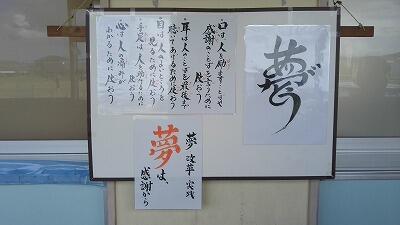 ありがとう
・口は人を励ますことばや
感謝のことばを言うために
使おう
・耳は人のことばを最後まで
聴いてあげるために使おう
・目は人のよいところを
見るために使おう
・手足は人を助けるために
使おう
・心は人の痛みが
わかるために使おう
夢 改革 実践
夢は、
感謝から